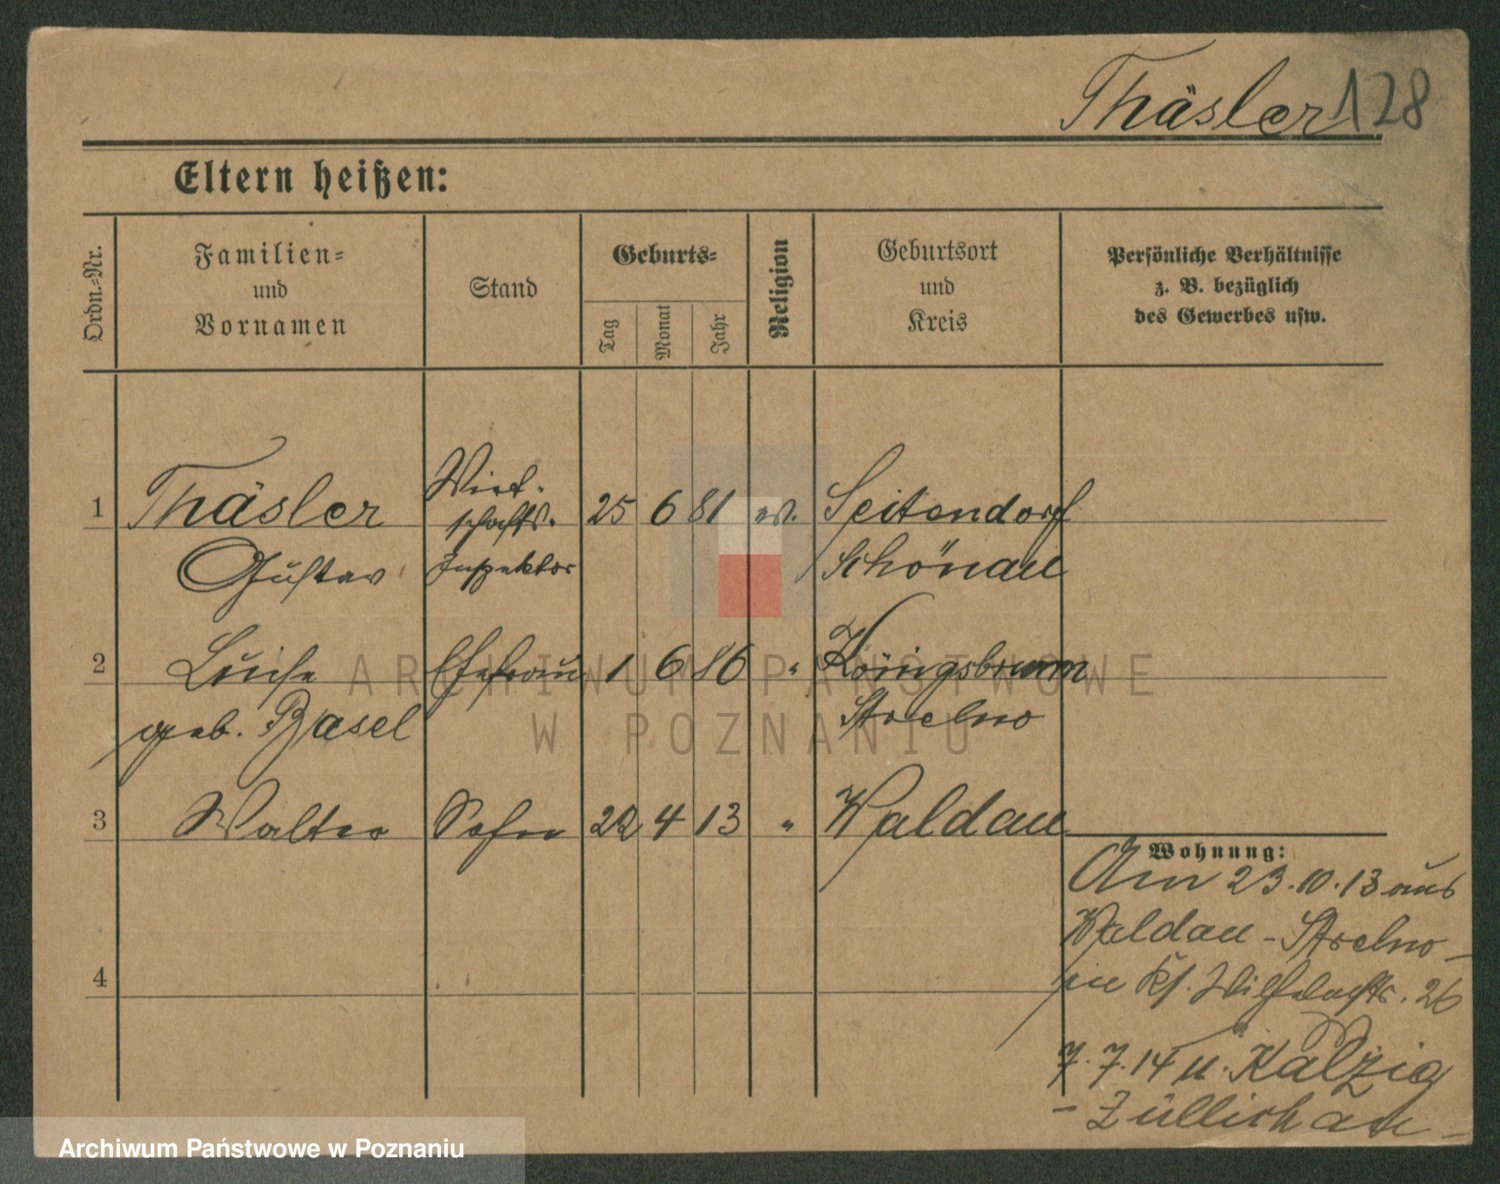 Thäsler 128
Eltern heißen:
Ordn.-Nr.
Familien-
und
Vornamen
Stand
Geburts-
Tag
Monat
Jahr
Religion
Geburtsort
und
Kreis
Persönliche Verhältnisse
z. B. bezüglich
des Gewerbes usw.
1 Thäsler Wirt- 25 6 81 ev. Seitendorf
schafts-
Gustav Inspektor Schönau
2 Luise Ehefrau 1 6 86 " Königsbrunn
geb. Basel Strelno
3 Walter Sohn 22 4 13 " Waldau
Wohnung:
Am 23.10.13 aus
Waldau - Strelno -
in Kl.
26
4
7.7.14 n. Kalzig
- Züllichau -
ARCHIWUM PAŃSTWOWE
W POZNANIU
Archiwum Państwowe w Poznaniu